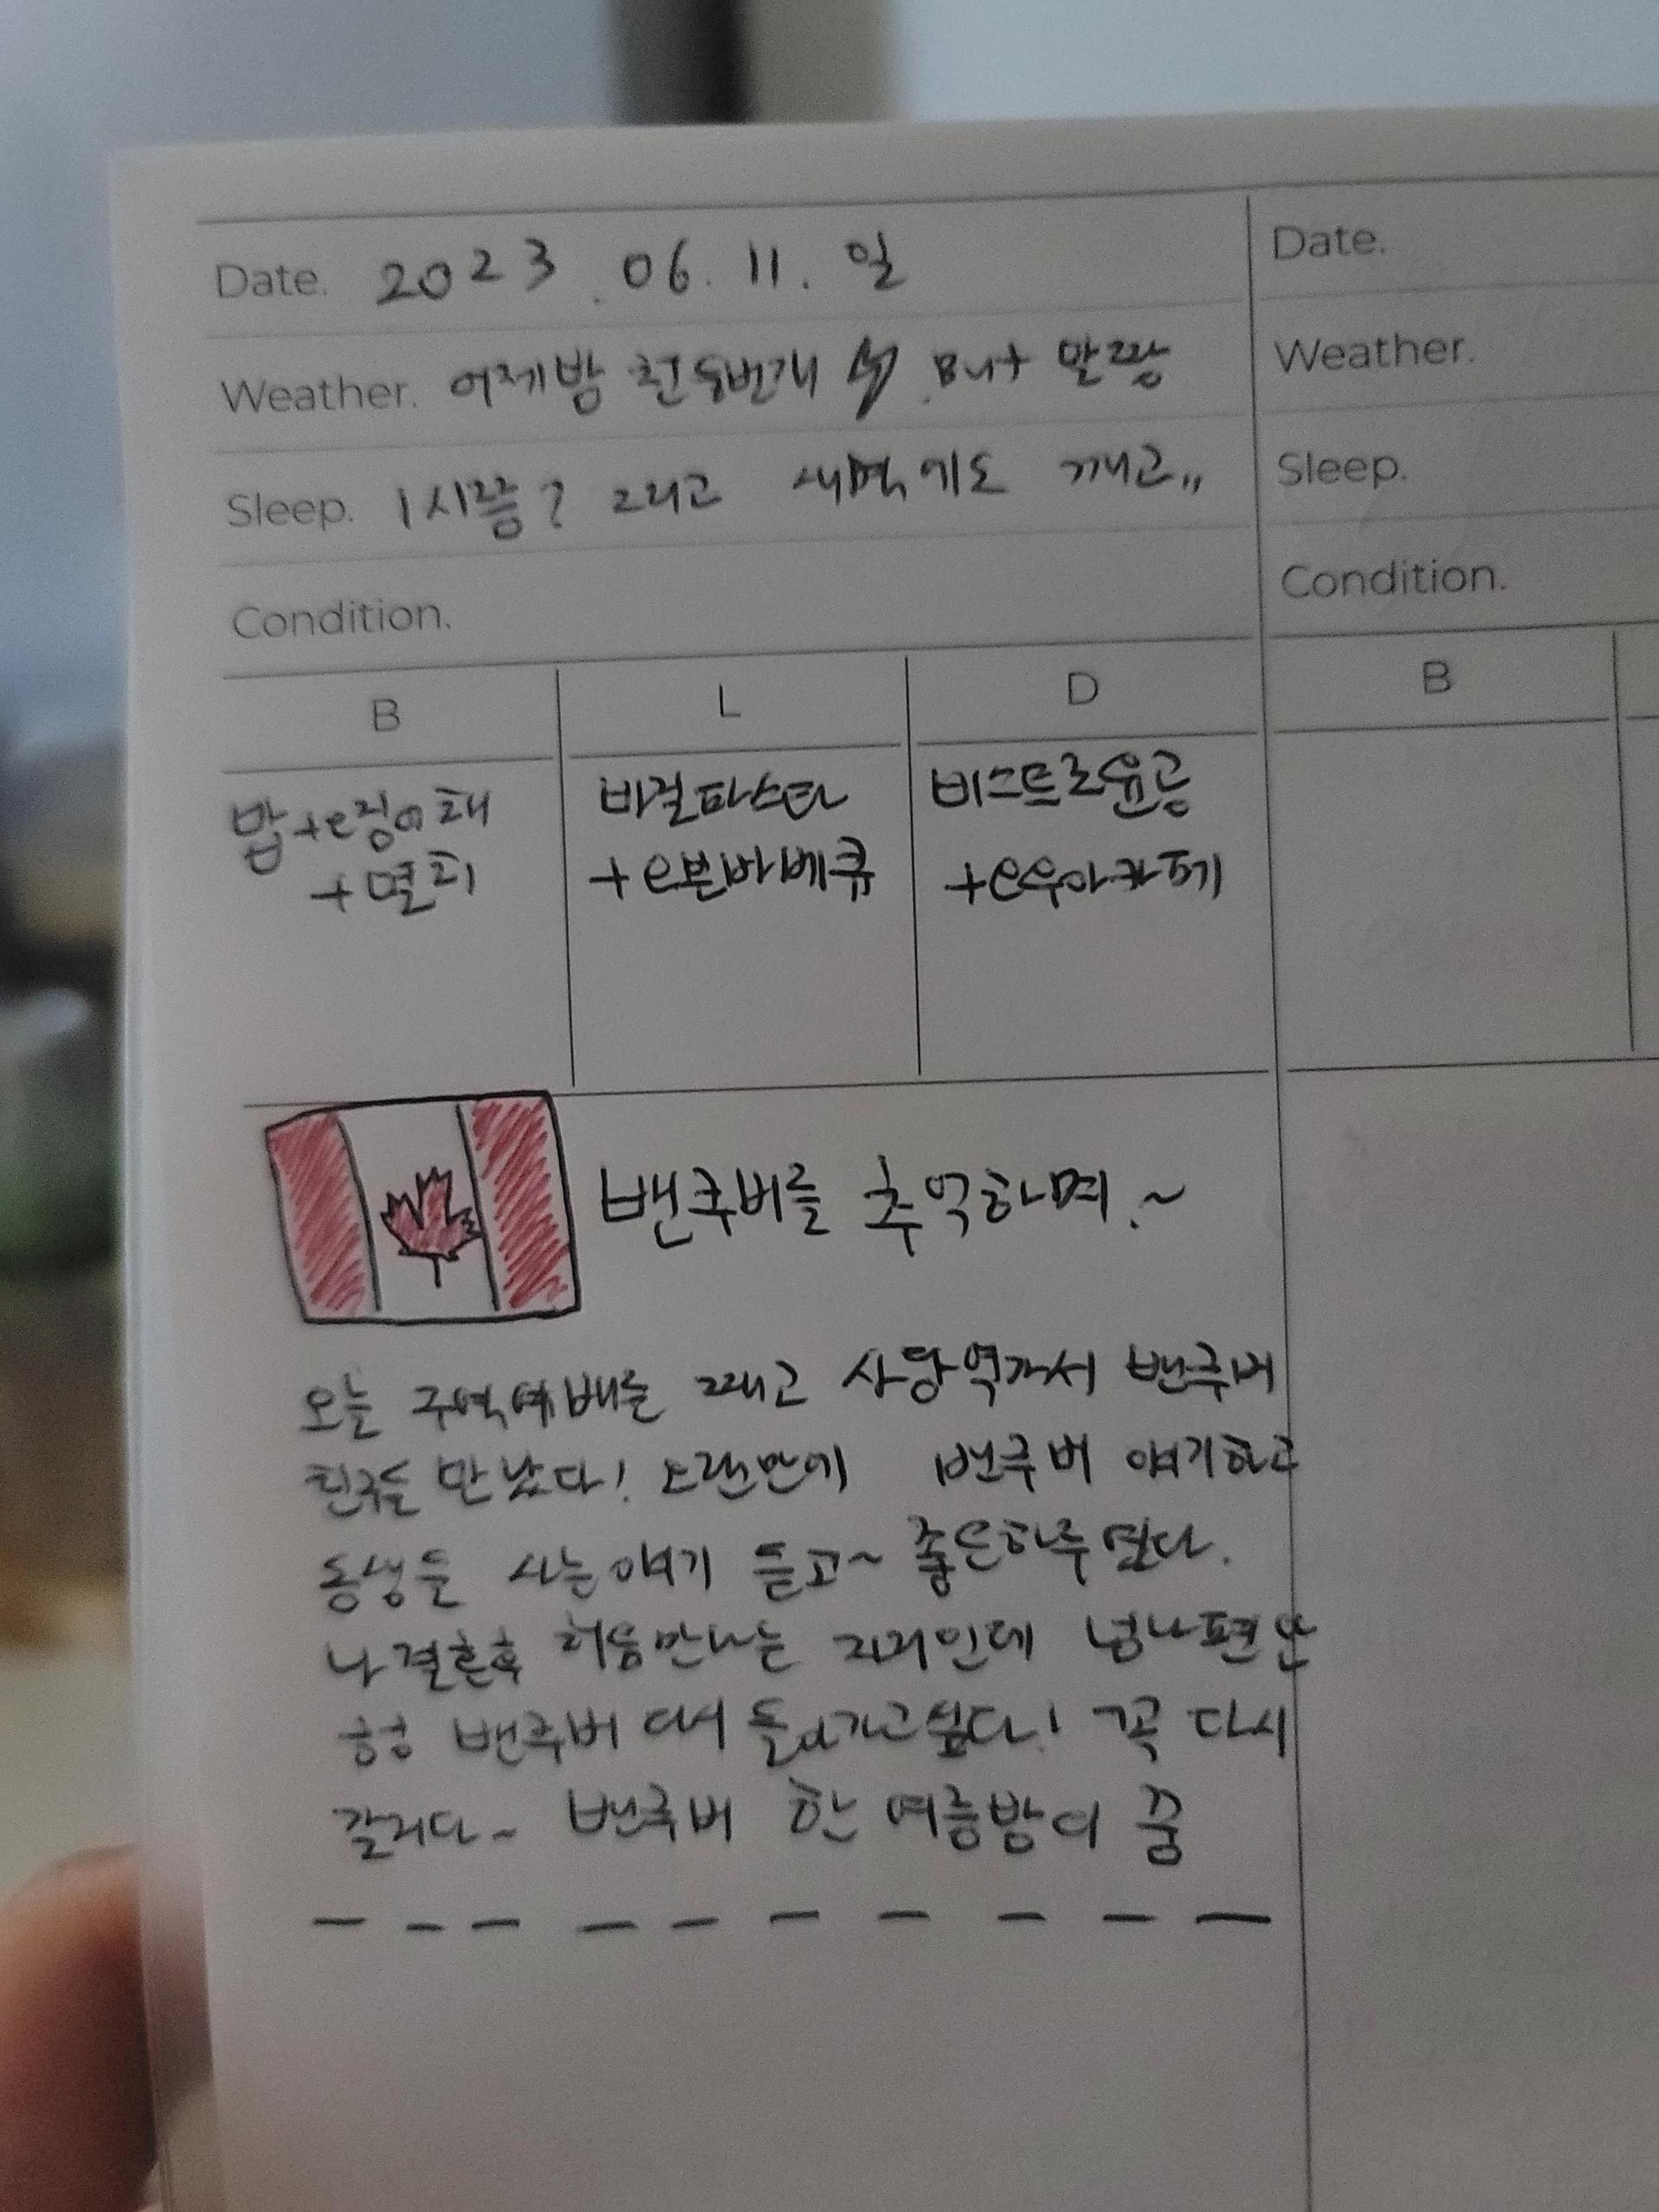 Date. 2023. 06. 11. 일
Date.
Weather. 어제밤 천둥번개 . But 말짱
Weather.
Sleep. 1시쯤? 그리고 새벽에도 깨고,,
Sleep.
Condition.
Condition.
B L D
B
밥+오징어채
+멸치
비건파스타
+오븐바베큐
비스트로윤공
+요우아카페
밴쿠버를 추억하며.~
오늘 구역예배를 째고 사당역가서 밴쿠버
친구들 만났다! 오랜만에 밴쿠버 얘기하고
동생들 사는얘기 듣고~ 좋은하루였다.
나 결혼후 처음만나는 자리인데 넘나편안
밴쿠버 다시 돌아가고싶다! 꼭 다시
갈거다~ 밴쿠버 한 여름밤의 꿈